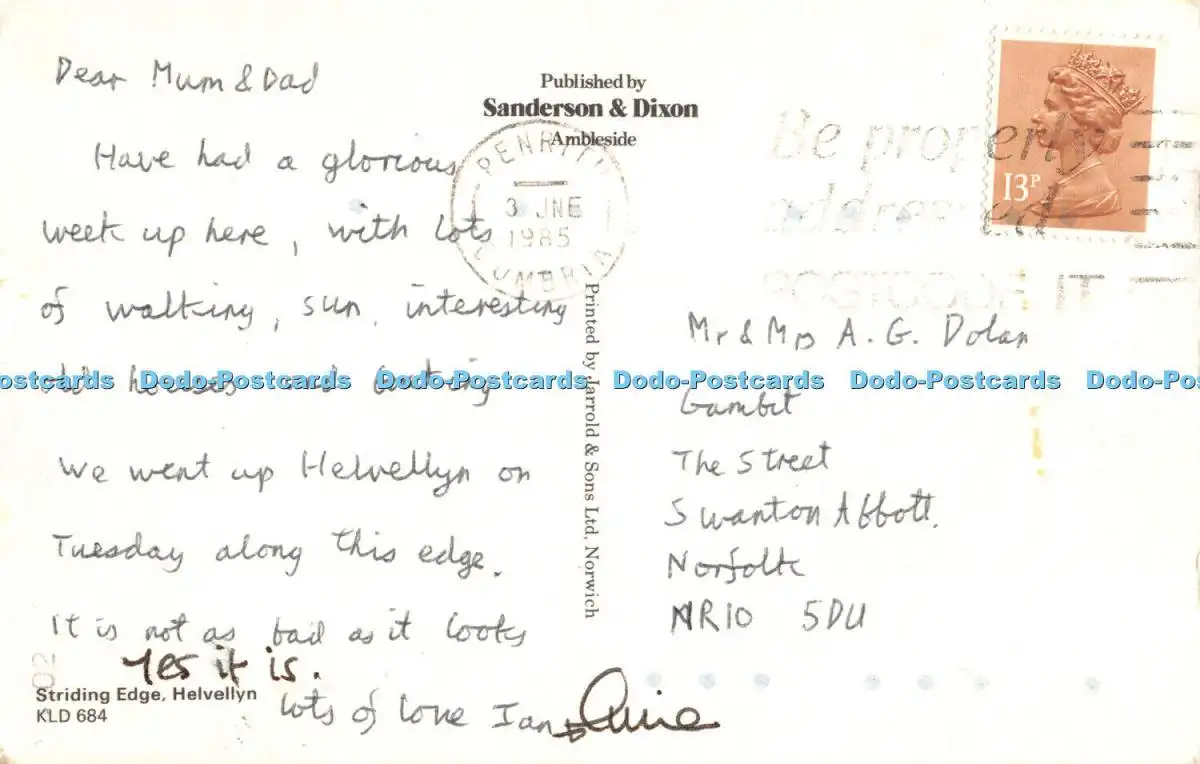 Dear Mum & Dad
Have had a glorious
week up here, with lots
of walking, sun, interesting
old houses and eating
We went up Helvellyn on
Tuesday along this edge.
It is not as bad as it looks
Yes it is.
lots of love Ian &
Striding Edge, Helvellyn
KLD 684
Published by
Sanderson & Dixon
Ambleside
PENRITH
3 JNE
1985
CUMBRIA
Printed by Jarrold & Sons Ltd, Norwich
Be properly
addressed
POSTCODE IT
13P
Mr & Mrs A. G. Dolan
Gambit
The Street
Swanton Abbott.
Norfolk
NR10 5DU
ostcards Dodo-Postcards Dodo-Postcards Dodo-Postcards Dodo-Postcards Dodo-Pos